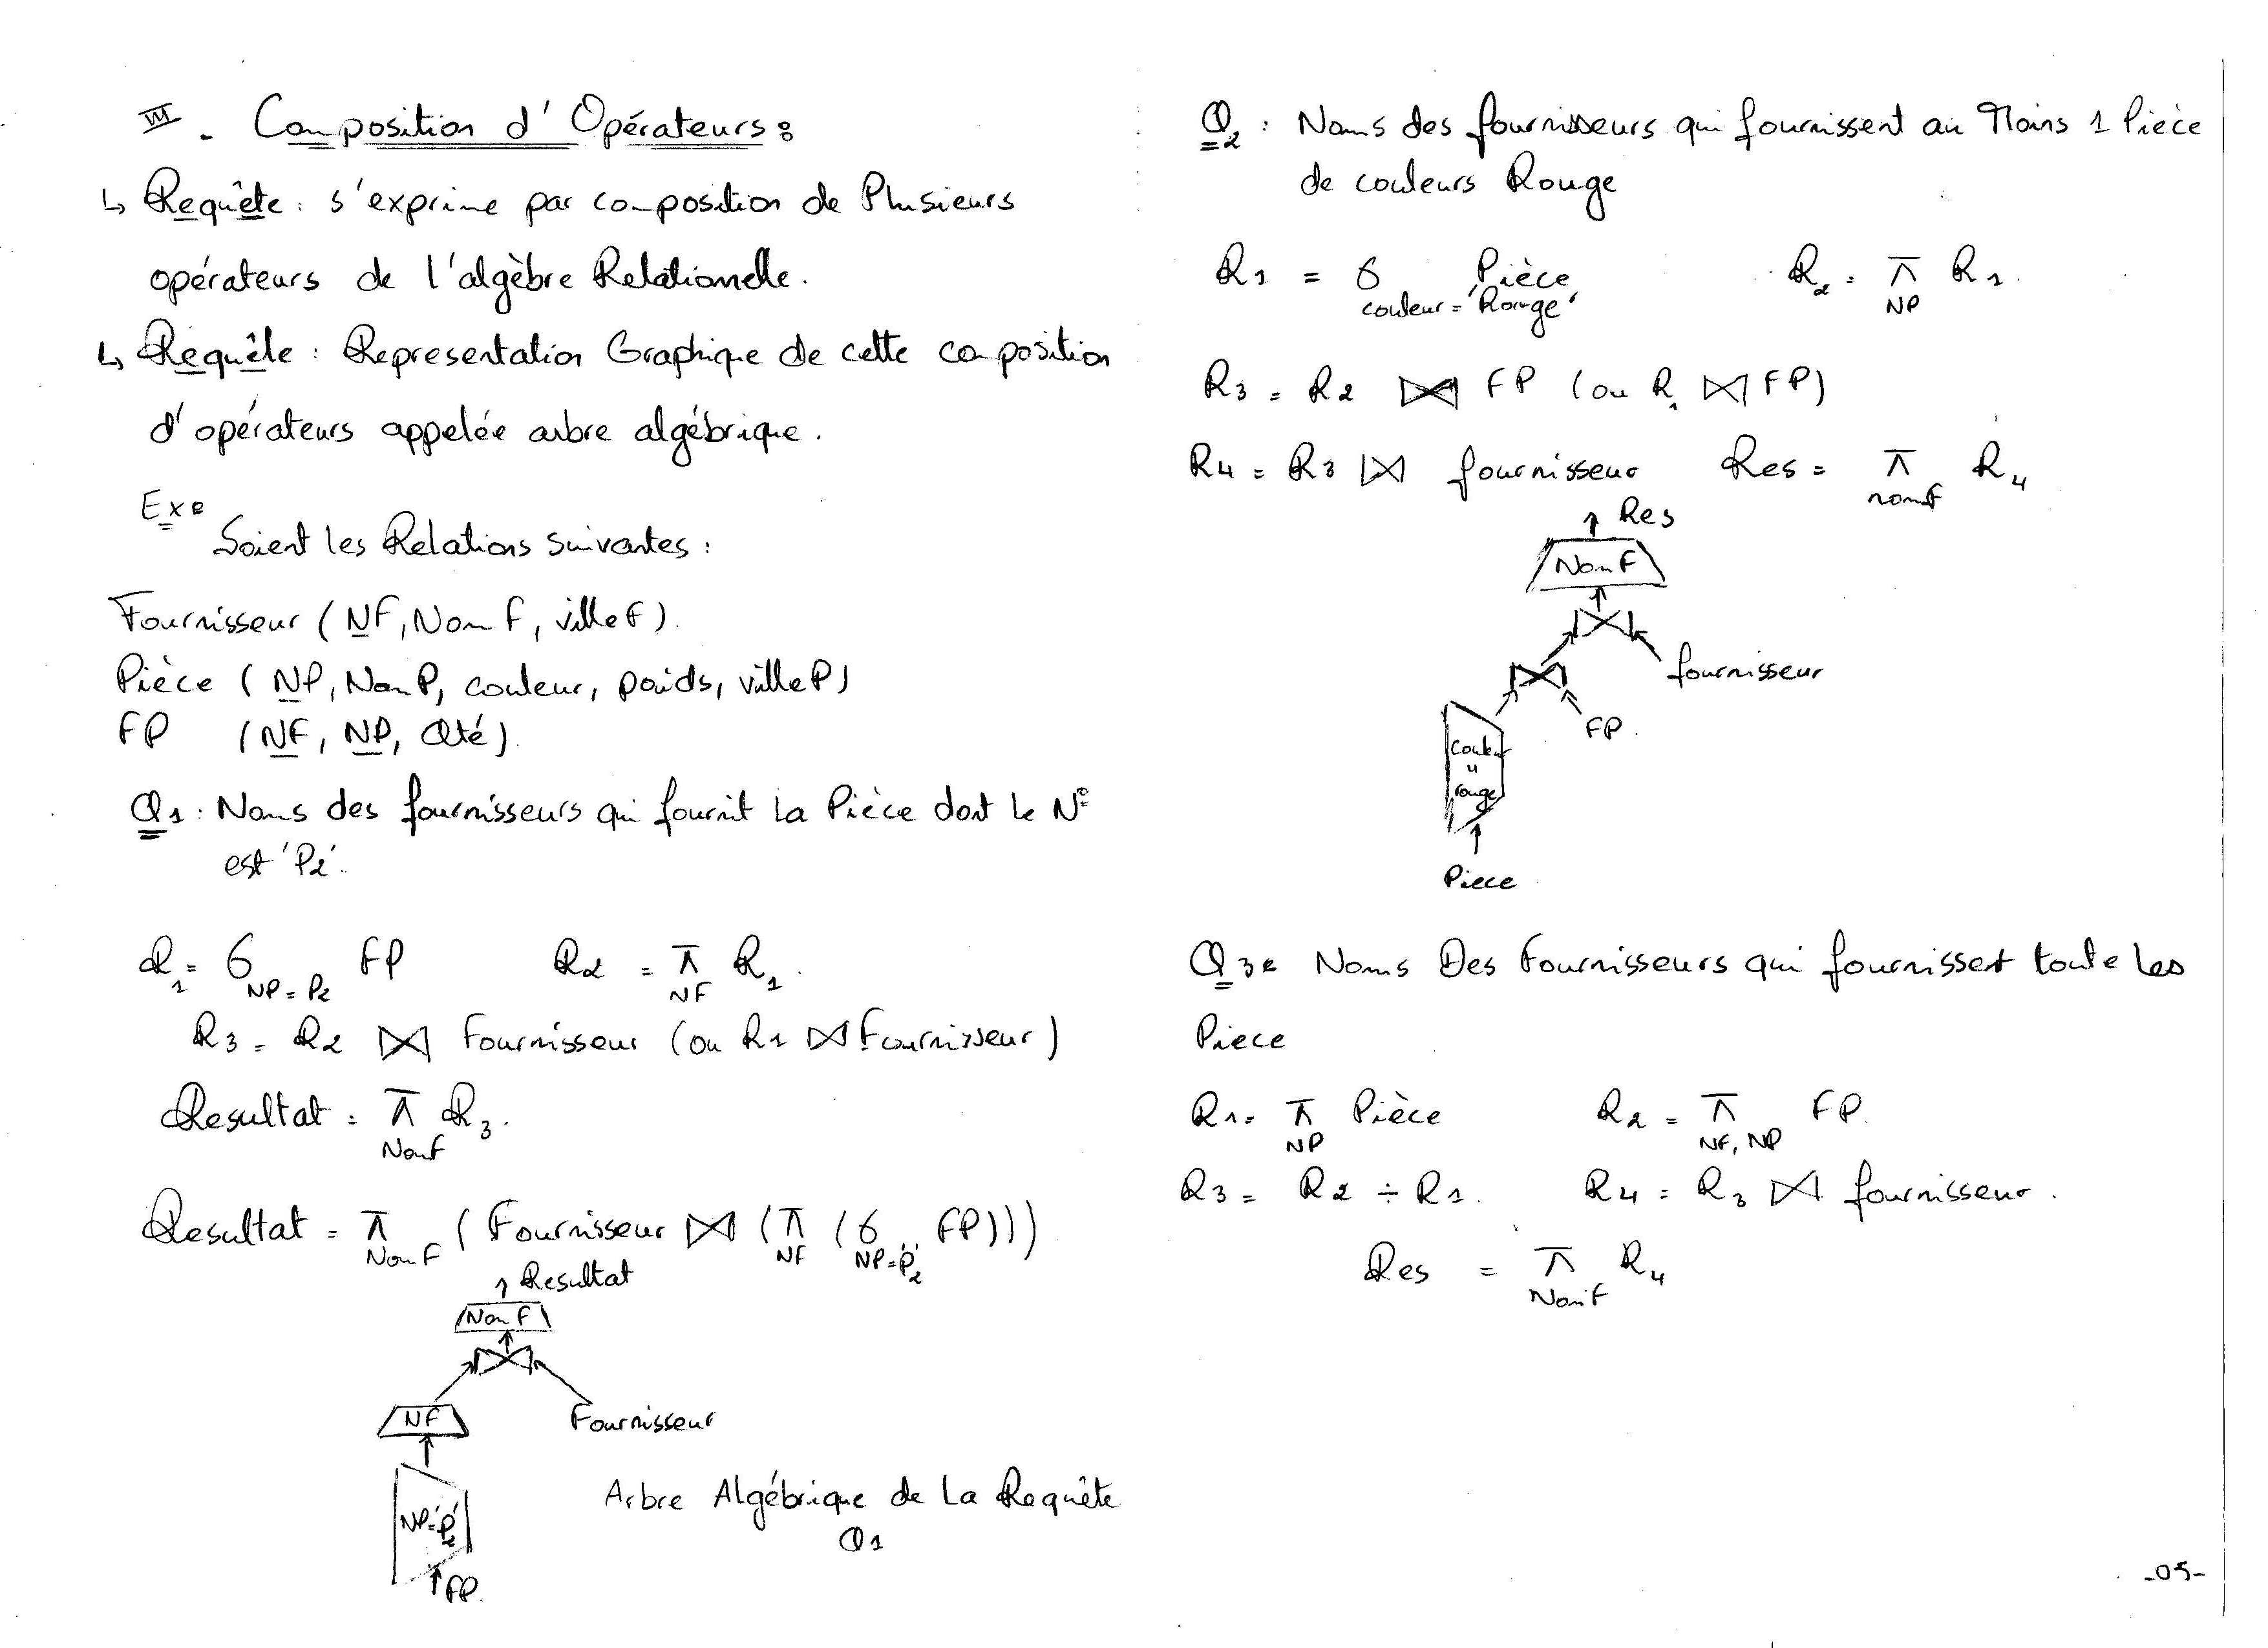 III. Composition d'Opérateurs :
↳ Requête : s'exprime par composition de Plusieurs
opérateurs de l'algèbre Relationnelle.
↳ Requête : Representation Graphique de cette composition
d'opérateurs appelée arbre algébrique.
Exe
Soient les Relations suivantes :
Fournisseur (NF, NomF, villeF).
Pièce (NP, NomP, couleur, poids, villeP)
FP (NF, NP, Qté).
Q1 : Noms des fournisseurs qui fournit la Pièce dont le N°
est 'P2'.
R1 = σ NP=P2 FP R2 = π NF R1.
R3 = R2 ⋈ Fournisseur (ou R1 ⋈ Fournisseur)
Resultat = π NomF R3.
Resultat = π NomF (Fournisseur ⋈ (π NF (σ NP='P2' FP)))
↑ Resultat
NomF
⋈
NF
Fournisseur
NP='P2'
Arbre Algébrique de La Requête
Q1
↑ FP.
Q2 : Noms des fournisseurs qui fournissent au Moins 1 Pièce
de couleurs Rouge
R1 = σ couleur='Rouge' Pièce R2 = π NP R1.
R3 = R2 ⋈ FP (ou R1 ⋈ FP)
R4 = R3 ⋈ fournisseur Res = π nomF R4
↑ Res
NomF
⋈
fournisseur
⋈
FP.
Couleur
=
rouge
Piece
Q3 : Noms Des Fournisseurs qui fournissent toute les
Piece
R1 = π NP Pièce R2 = π NF, NP FP.
R3 = R2 ÷ R1. R4 = R3 ⋈ fournisseur.
Res = π NomF R4
-05-